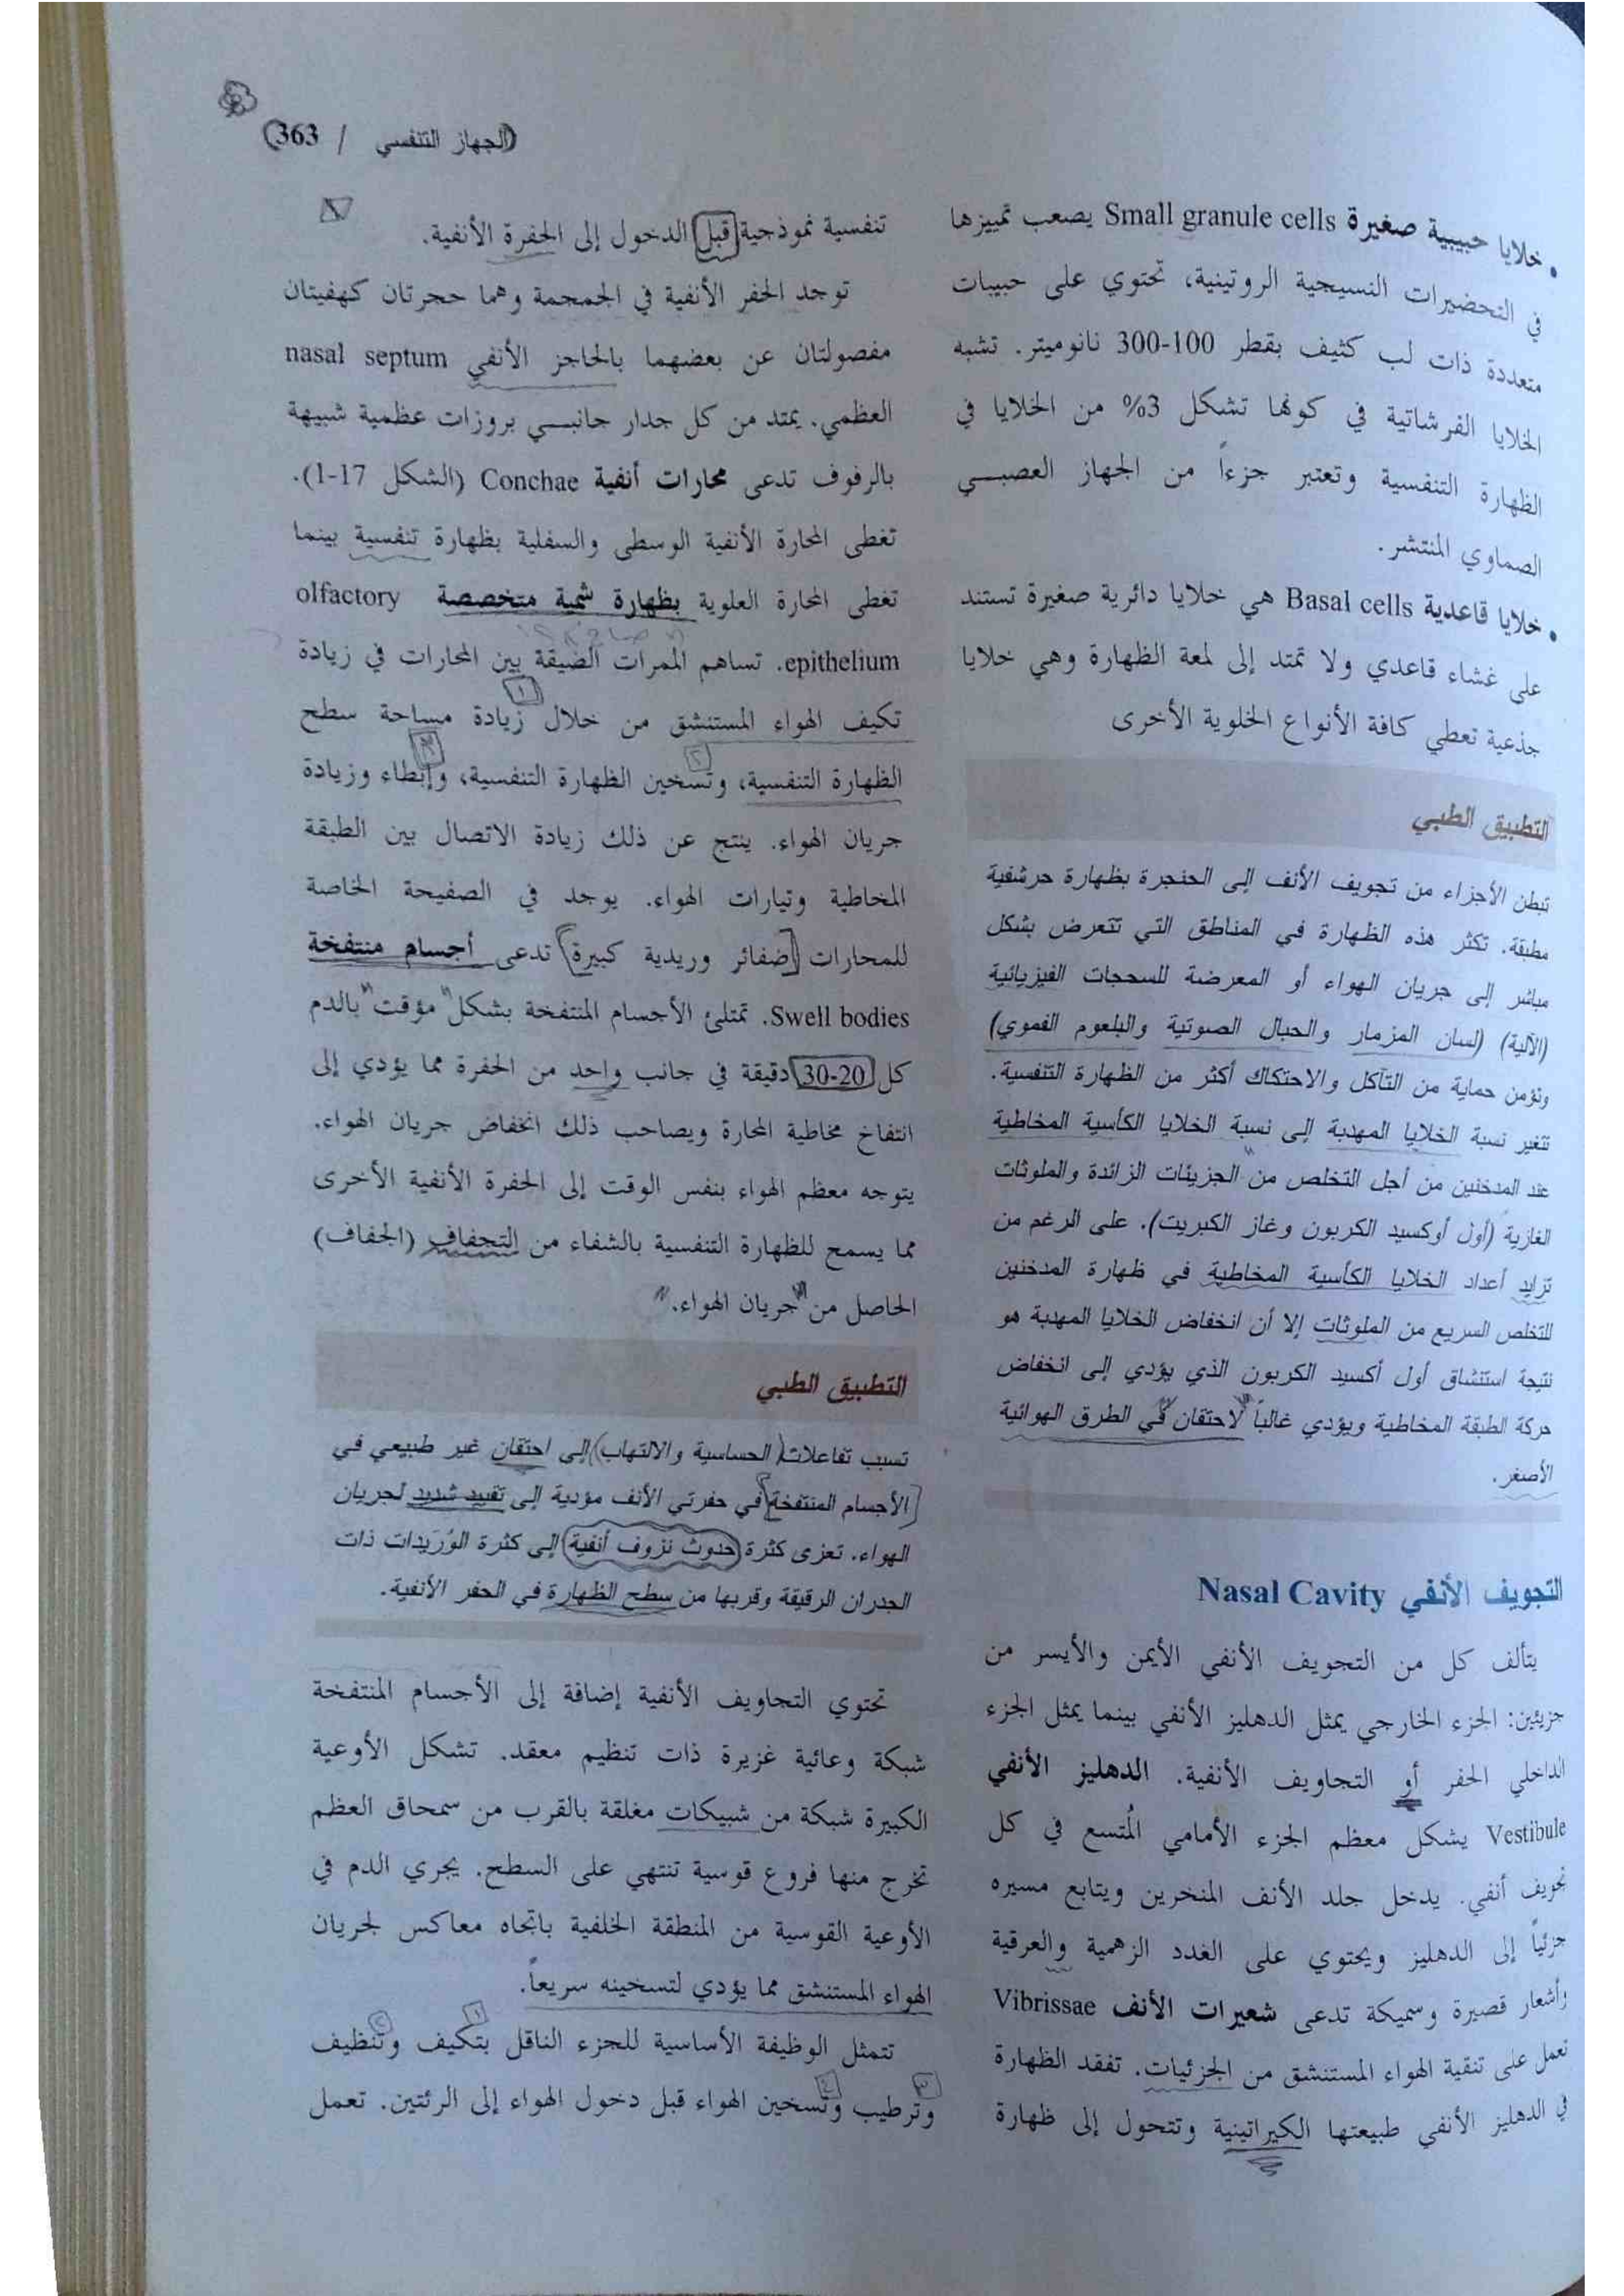 الجهاز التنفسي / 363
• خلايا حبيبية صغيرة Small granule cells يصعب تمييزها
في التحضيرات النسيجية الروتينية، تحتوي على حبيبات
متعددة ذات لب كثيف بقطر 100-300 نانوميتر. تشبه
الخلايا الفرشاتية في كونها تشكل 3% من الخلايا في
الظهارة التنفسية وتعتبر جزءاً من الجهاز العصبي
الصماوي المنتشر.
• خلايا قاعدية Basal cells هي خلايا دائرية صغيرة تستند
على غشاء قاعدي ولا تمتد إلى لمعة الظهارة وهي خلايا
جذعية تعطي كافة الأنواع الخلوية الأخرى
التطبيق الطبي
تبطن الأجزاء من تجويف الأنف إلى الحنجرة بظهارة حرشفية
مطبقة. تكثر هذه الظهارة في المناطق التي تتعرض بشكل
مباشر إلى جريان الهواء أو المعرضة للسحجات الفيزيائية
(الآلية) (لسان المزمار والحبال الصوتية والبلعوم الفموي)
وتؤمن حماية من التآكل والاحتكاك أكثر من الظهارة التنفسية.
تتغير نسبة الخلايا المهدبة إلى نسبة الخلايا الكأسية المخاطية
عند المدخنين من أجل التخلص من الجزيئات الزائدة والملوثات
الغازية (أول أوكسيد الكربون وغاز الكبريت). على الرغم من
تزايد أعداد الخلايا الكأسية المخاطية في ظهارة المدخنين
للتخلص السريع من الملوثات إلا أن انخفاض الخلايا المهدبة هو
نتيجة استنشاق أول أكسيد الكربون الذي يؤدي إلى انخفاض
حركة الطبقة المخاطية ويؤدي غالباً لاحتقان في الطرق الهوائية
الأصغر.
التجويف الأنفي Nasal Cavity
يتألف كل من التجويف الأنفي الأيمن والأيسر من
جزيئين: الجزء الخارجي يمثل الدهليز الأنفي بينما يمثل الجزء
الداخلي الحفر أو التجاويف الأنفية. الدهليز الأنفي
Vestibule يشكل معظم الجزء الأمامي المُتسع في كل
تجويف أنفي. يدخل جلد الأنف المنخرين ويتابع مسيره
جزئياً إلى الدهليز ويحتوي على الغدد الزهمية والعرقية
وأشعار قصيرة وسميكة تدعى شعيرات الأنف Vibrissae
تعمل على تنقية الهواء المستنشق من الجزئيات. تفقد الظهارة
في الدهليز الأنفي طبيعتها الكيراتينية وتتحول إلى ظهارة
تنفسية نموذجية قبل الدخول إلى الحفرة الأنفية.
توجد الحفر الأنفية في الجمجمة وهما حجرتان كهفيتان
مفصولتان عن بعضهما بالحاجز الأنفي nasal septum
العظمي. يمتد من كل جدار جانبي بروزات عظمية شبيهة
بالرفوف تدعى محارات أنفية Conchae (الشكل 17-1).
تغطى المحارة الأنفية الوسطى والسفلية بظهارة تنفسية بينما
تغطى المحارة العلوية بظهارة شمية متخصصة olfactory
epithelium. تساهم الممرات الضيقة بين المحارات في زيادة
تكيف الهواء المستنشق من خلال زيادة مساحة سطح
الظهارة التنفسية، وتسخين الظهارة التنفسية، وإبطاء وزيادة
جريان الهواء. ينتج عن ذلك زيادة الاتصال بين الطبقة
المخاطية وتيارات الهواء. يوجد في الصفيحة الخاصة
للمحارات ضفائر وريدية كبيرة تدعى أجسام منتفخة
Swell bodies. تمتلئ الأجسام المنتفخة بشكل مؤقت بالدم
كل 20-30 دقيقة في جانب واحد من الحفرة مما يؤدي إلى
انتفاخ مخاطية المحارة ويصاحب ذلك انخفاض جريان الهواء.
يتوجه معظم الهواء بنفس الوقت إلى الحفرة الأنفية الأخرى
مما يسمح للظهارة التنفسية بالشفاء من التجفاف (الجفاف)
الحاصل من جريان الهواء.
التطبيق الطبي
تسبب تفاعلات (الحساسية والالتهاب) إلى احتقان غير طبيعي في
الأجسام المنتفخة في حفرتي الأنف مؤدية إلى تقييد شديد لجريان
الهواء. تعزى كثرة حدوث نزوف أنفية إلى كثرة الوُرَيدات ذات
الجدران الرقيقة وقربها من سطح الظهارة في الحفر الأنفية.
تحتوي التجاويف الأنفية إضافة إلى الأجسام المنتفخة
شبكة وعائية غزيرة ذات تنظيم معقد. تشكل الأوعية
الكبيرة شبكة من شبيكات مغلقة بالقرب من سمحاق العظم
تخرج منها فروع قوسية تنتهي على السطح. يجري الدم في
الأوعية القوسية من المنطقة الخلفية باتجاه معاكس لجريان
الهواء المستنشق مما يؤدي لتسخينه سريعاً.
تتمثل الوظيفة الأساسية للجزء الناقل بتكيف وتنظيف
وترطيب وتسخين الهواء قبل دخول الهواء إلى الرئتين. تعمل